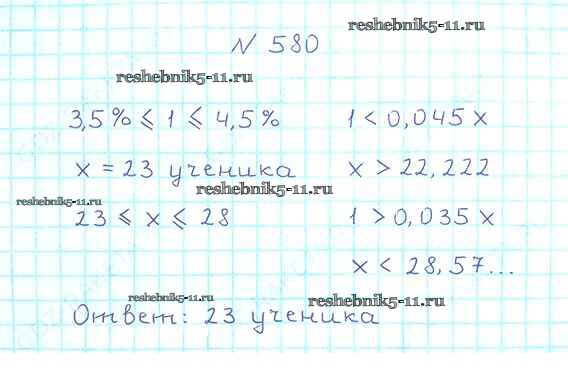 reshebnik5-11.ru
N 580
reshebnik5-11.ru
3,5% ⩽ 1 ⩽ 4,5%
1 < 0,045 x
x = 23 ученика
x > 22,222
reshebnik5-11.ru
reshebnik5-11.ru
23 ⩽ x ⩽ 28
1 > 0,035 x
x < 28,57...
reshebnik5-11.ru
reshebnik5-11.ru
Ответ: 23 ученика